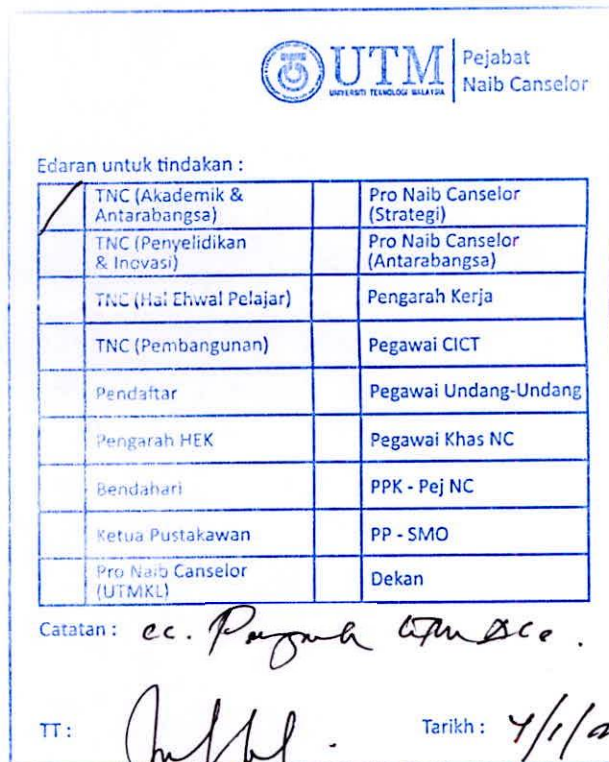 UTM
UNIVERSITI TEKNOLOGI MALAYSIA
Pejabat
Naib Canselor
Edaran untuk tindakan :
/ TNC (Akademik &
Antarabangsa)
Pro Naib Canselor
(Strategi)
TNC (Penyelidikan
& Inovasi)
Pro Naib Canselor
(Antarabangsa)
TNC (Hal Ehwal Pelajar)
Pengarah Kerja
TNC (Pembangunan)
Pegawai CICT
Pendaftar
Pegawai Undang-Undang
Pengarah HEK
Pegawai Khas NC
Bendahari
PPK - Pej NC
Ketua Pustakawan
PP - SMO
Pro Naib Canselor
(UTMKL)
Dekan
Catatan : cc.
TT :
Tarikh :